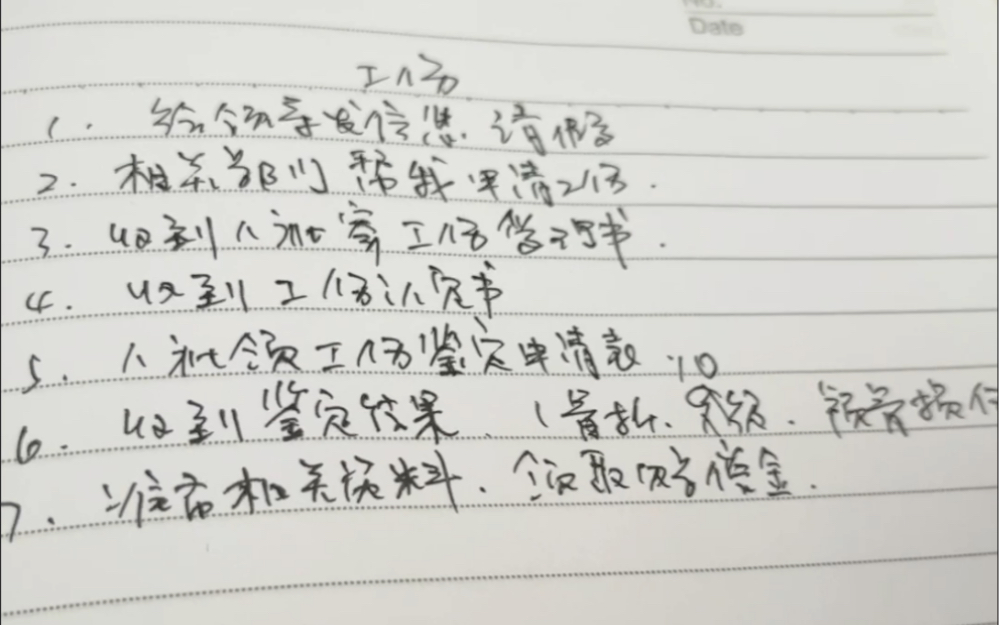 No.
Date
工伤
1. 给领导发信息.请假
2. 相关部门帮我申请工伤.
3. 收到人社寄工伤受理书.
4. 收到工伤认定书
5. 人社领工伤鉴定申请表
6. 收到鉴定结果、(骨折.
7. 准备相关材料、领取伤害偿金.